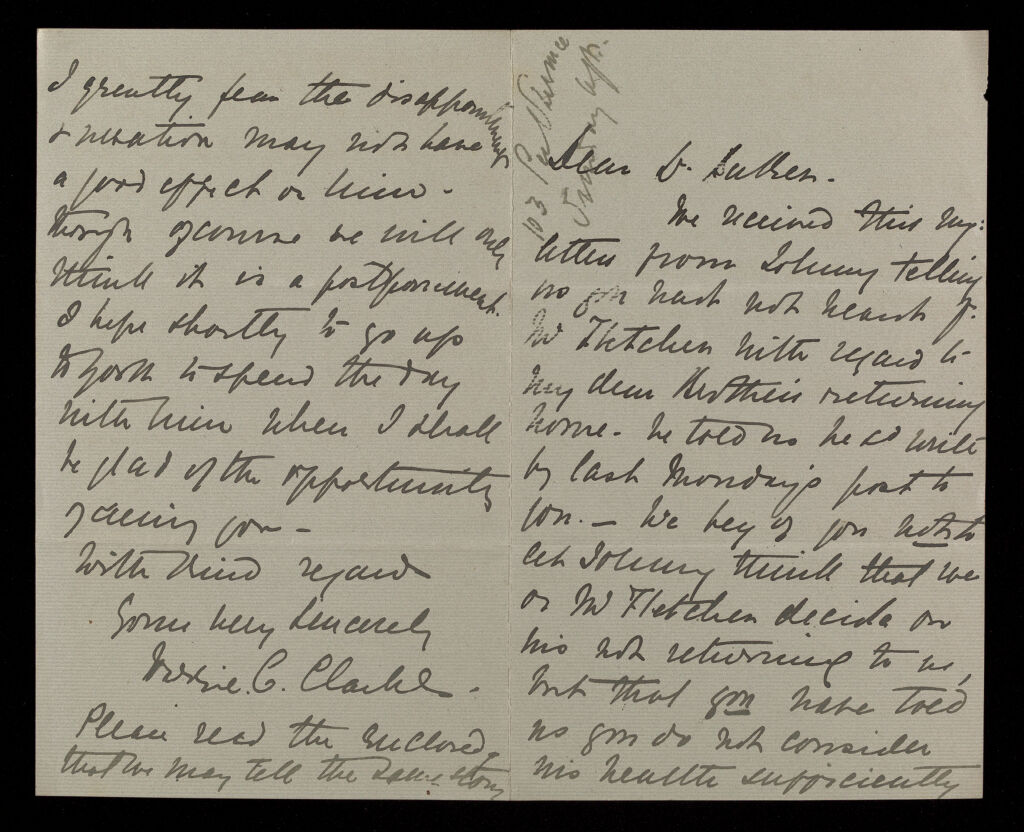 103
Dear Dr.
We received this mg:
letter from Johnny telling
us you had not heard f.
Mr Fletcher with regard to
my dear Brothers returning
home. he told us he wd write
by last Mondays post to
you. — We beg of you not to
let Johnny think that we
or Mr Fletcher decide on
his not returning to us,
but that you have told
us you do not consider
his health sufficiently
I greatly fear the disappointment
& vexation may not have
a good effect on him.
though of course we will only
think it is a postponement.
I hope shortly to go up
to York to spend the day
with him when I shall
be glad of the opportunity
of seeing you —
With kind regards
Yours very sincerely
C. Clarke.
Please read the enclosed,
that we may tell the same story